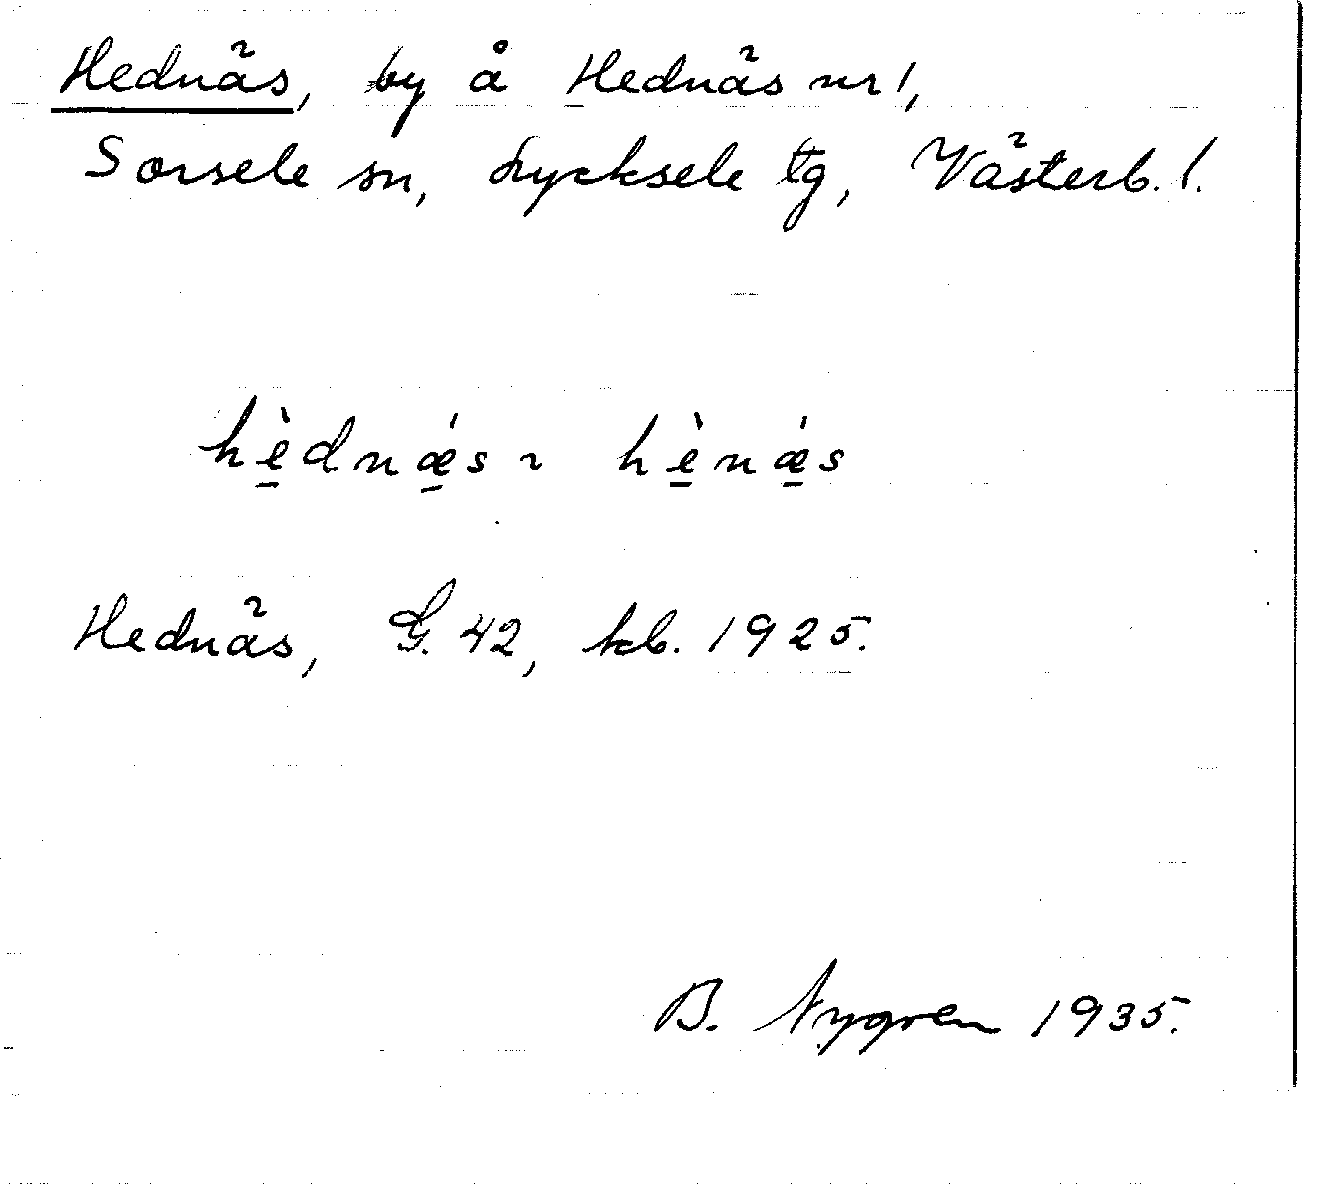 Hednäs, by å Hednäs nr 1,
Sorsele sn, Lycksele tg, Västerb. l.
hè̱dnǽ̱s ~ hè̱nǽ̱s
Hednäs, G. 42, kb. 1925.
B. Nygren 1935.